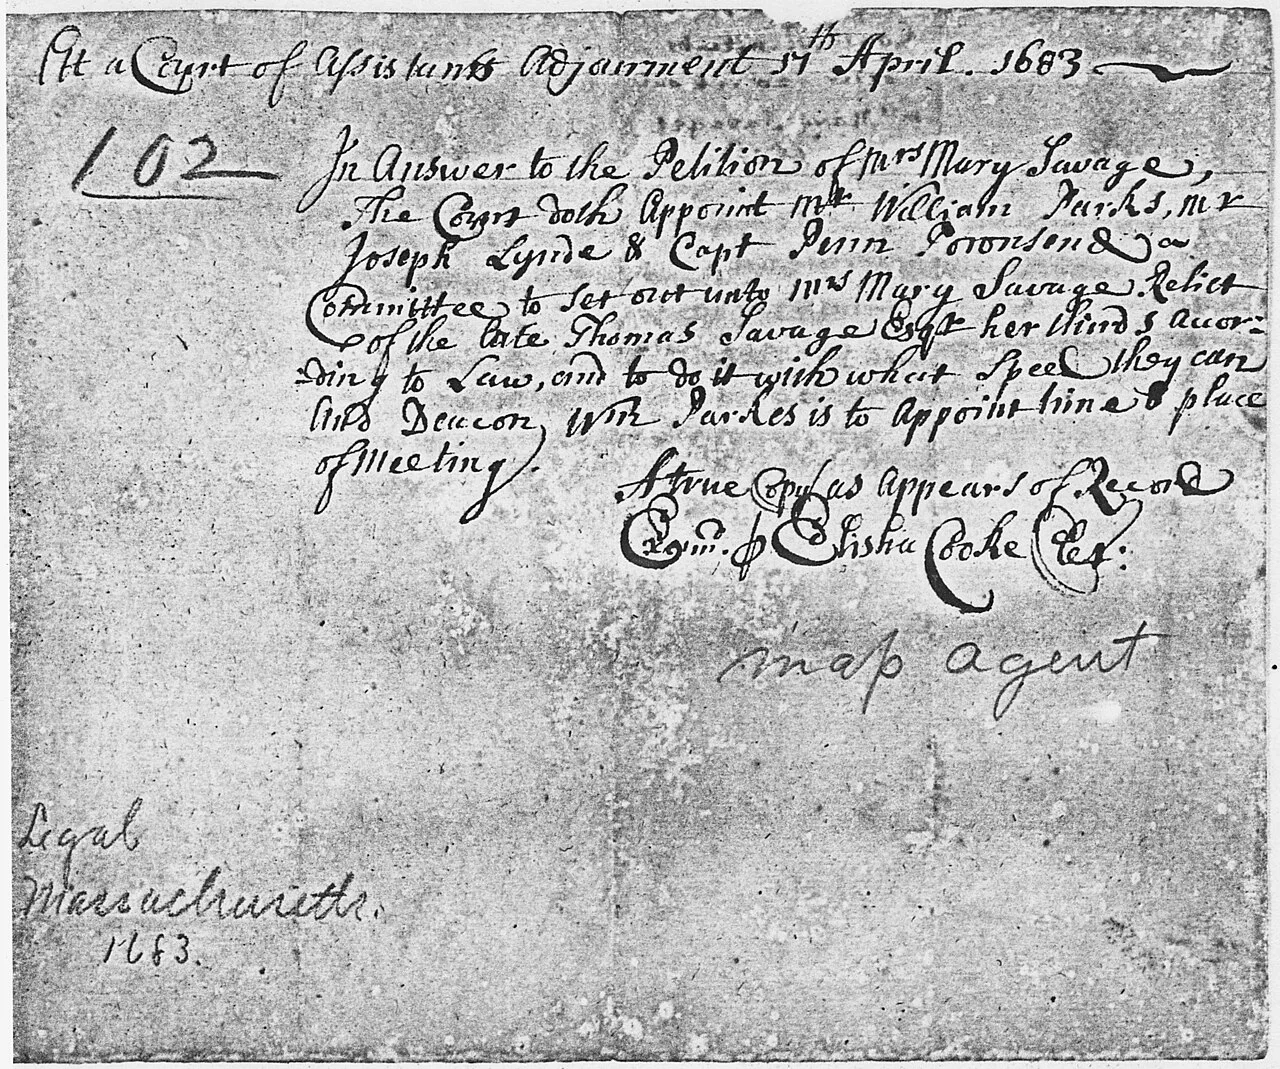 Att a Court of Assistants Adjournment 17th April. 1683
102
In Answer to the Petition of Mrs Mary Savage,
The Court doth Appoint Mr William Parks, mr
Joseph Lynde & Capt Penn Townsend a
Committtee to set out unto Mrs Mary Savage Relict
of the late Thomas Savage Esqr her thirds accor=
=ding to Law, and to do it with what speed they can
And Deacon Wm Parkes is to Appoint time & place
of Meeting.
A true Copy as Appears of Record
Exam. p Elisha Cooke Cler:
map agent
Legal
Massachusetts.
1683.